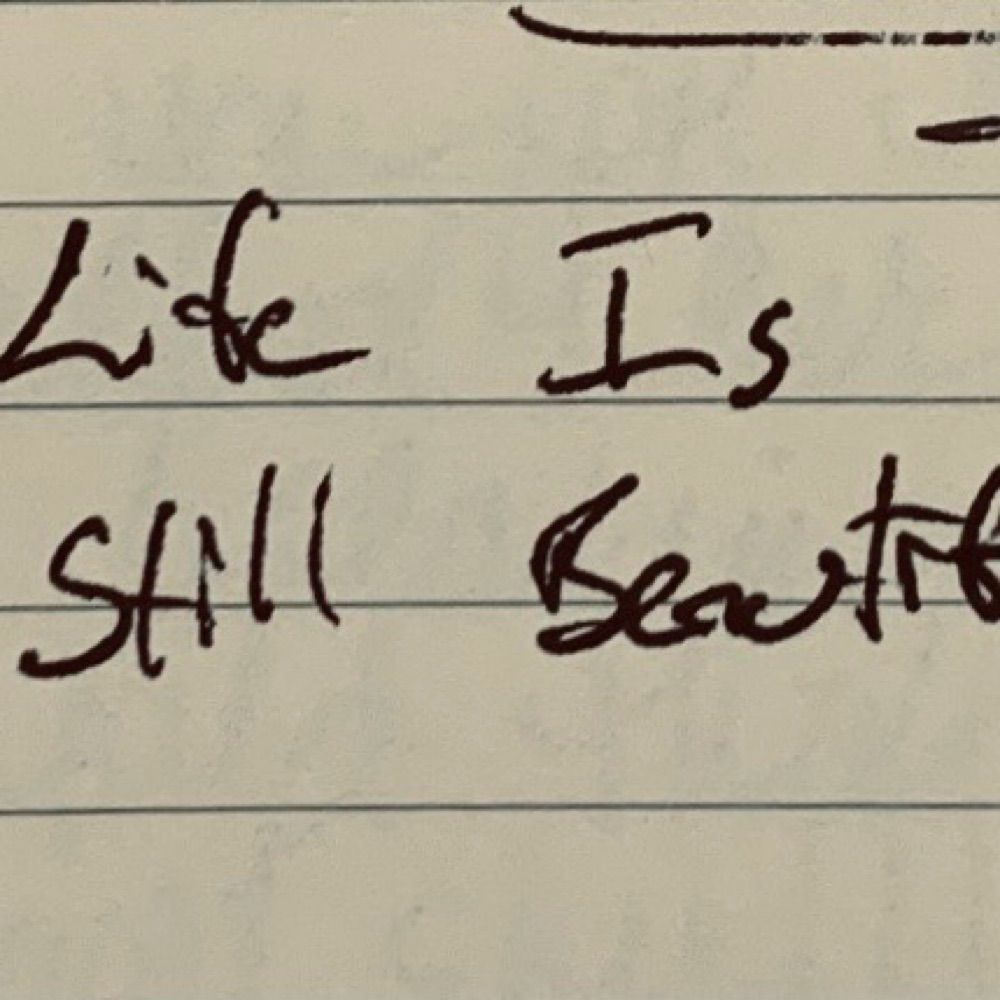 Life Is
Still Beautif